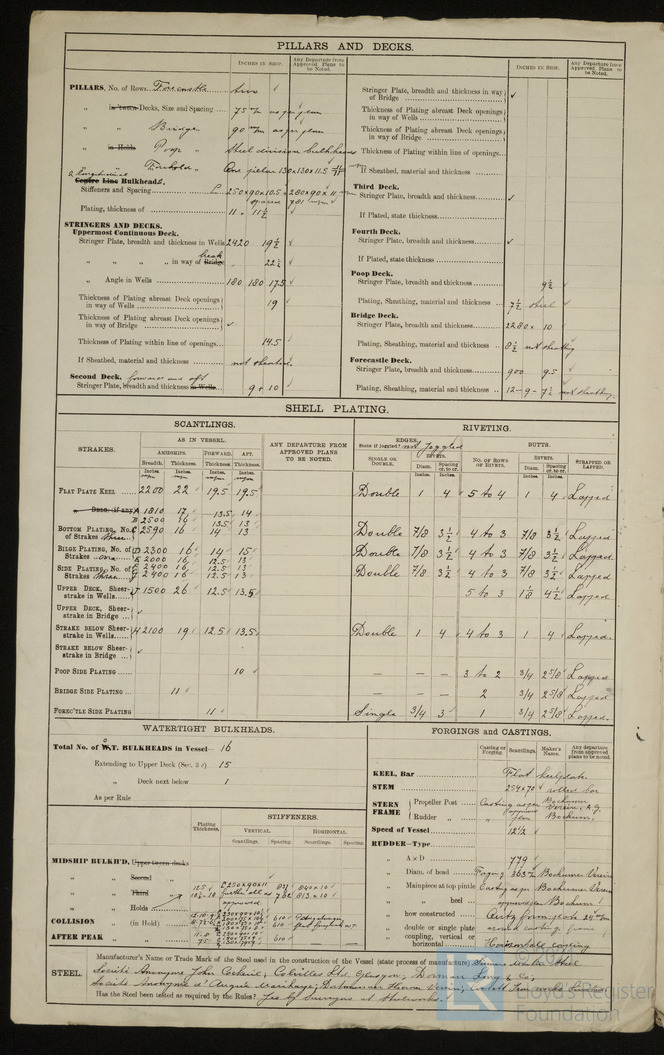 PILLARS AND DECKS.
INCHES IN SHIP.
Any Departure from Approved Plans to be Noted.
PILLARS, No. of Rows
two
„ in 'tween Decks, Size and Spacing
75 m/m as per plan
„ „ Bridge „
90 m/m as per plan
„ in Holds Poop „
Steel division bulkheads
„ „ Forehold „
One pillar 130x130x11.5
2 longitudinal
Centre Line Bulkheads,
Stiffeners and Spacing
250x90x10.5 + 280x90x11
spaced 781
Plating, thickness of
11 + 11½
STRINGERS AND DECKS.
Uppermost Continuous Deck.
Stringer Plate, breadth and thickness in Wells 2420 19½
„ „ „ „ in way of Bridge break 22½
„ Angle in Wells 180 180 17.5
Thickness of Plating abreast Deck openings in way of Wells 19
Thickness of Plating abreast Deck openings in way of Bridge
Thickness of Plating within line of openings 14.5
If Sheathed, material and thickness not sheathed
Second Deck. forward and aft
Stringer Plate, breadth and thickness in Wells 9 + 10
INCHES IN SHIP.
Any Departure from Approved Plans to be Noted.
Stringer Plate, breadth and thickness in way of Bridge
Thickness of Plating abreast Deck openings in way of Wells
Thickness of Plating abreast Deck openings in way of Bridge
Thickness of Plating within line of openings
If Sheathed, material and thickness
Third Deck.
Stringer Plate, breadth and thickness
If Plated, state thickness
Fourth Deck.
Stringer Plate, breadth and thickness
If Plated, state thickness
Poop Deck.
Stringer Plate, breadth and thickness 9½
Plating, Sheathing, material and thickness 7½ steel
Bridge Deck.
Stringer Plate, breadth and thickness 2280 x 10
Plating, Sheathing, material and thickness 8½ not sheathing
Forecastle Deck.
Stringer Plate, breadth and thickness 900 9.5
Plating, Sheathing, material and thickness 12 - 9 - 7½ not sheathing.
SHELL PLATING.
SCANTLINGS.
RIVETING.
STRAKES.
AS IN VESSEL.
AMIDSHIPS. FORWARD. AFT.
Breadth. Thickness. Thickness. Thickness.
ANY DEPARTURE FROM APPROVED PLANS TO BE NOTED.
EDGES.
State if joggled? not joggled
SINGLE OR DOUBLE.
RIVETS.
Diam. Spacing cr. to cr.
BUTTS.
No. OF ROWS OF RIVETS.
RIVETS.
Diam. Spacing cr. to cr.
STRAPPED OR LAPPED.
FLAT PLATE KEEL 2200 22 19.5 19.5 Double 1 4 5 to 4 1 4 Lapped
„ DBLG. (if any) A 1810 17 13.5 14
B 2500 16 13.5 13
BOTTOM PLATING, No. of Strakes three C 2590 16 14 13 Double 7/8 3½ 4 to 3 7/8 3½ Lapped
BILGE PLATING, No. of Strakes one D 2300 16 14 15 Double 7/8 3½ 4 to 3 7/8 3½ Lapped.
E 2000 16 12.5 13
SIDE PLATING, No. of Strakes three F 2400 16 12.5 13 Double 7/8 3½ 4 to 3 7/8 3½ Lapped
G 2400 16 12.5 13
UPPER DECK, Sheer-strake in Wells J 1500 26 12.5 13.5 5 to 3 1⅛ 4½ Lapped
UPPER DECK, Sheer-strake in Bridge
STRAKE BELOW Sheer-strake in Wells H 2100 19 12.5 13.5 Double 1 4 4 to 3 1 4 Lapped.
STRAKE BELOW Sheer-strake in Bridge
POOP SIDE PLATING 10 — — — 3 to 2 3/4 2 5/8 Lapped
BRIDGE SIDE PLATING 11 — — — 2 3/4 2 5/8 Lapped
FOREC'TLE SIDE PLATING 11 Single 3/4 3 1 3/4 2 5/8 Lapped.
WATERTIGHT BULKHEADS.
Total No. of W.T. BULKHEADS in Vessel 16
Extending to Upper Deck (Sec. 3 c) 15
„ Deck next below 1
As per Rule
Plating Thickness.
STIFFENERS.
VERTICAL HORIZONTAL
Scantlings. Spacing Scantlings. Spacing
MIDSHIP BULKH'D, Upper tween decks
„ „ Second „
„ „ Third „
„ „ Holds
COLLISION „ (in Hold)
AFTER PEAK „
FORGINGS and CASTINGS.
Casting or Forging. Scantlings. Maker's Name. Any departure from approved plans to be noted.
KEEL, Bar Flat keelplate
STEM 254 x 70 rolled bar
STERN FRAME
Propeller Post Casting as per approved plan Bochumer Verein, A.G. Bochum.
Rudder „
Speed of Vessel 12½
RUDDER—Type
„ A x D 779
„ Diam. of head Forging 363 m/m Bochumer Verein
„ Mainpiece at top pintle Casting as per Bochumer Verein
„ „ heel approved plan Bochum
„ how constructed
„ double or single plate around casting frame
„ coupling, vertical or horizontal Horizontal coupling
STEEL.
Manufacturer's Name or Trade Mark of the Steel used in the construction of the Vessel (state process of manufacture) Siemens Martin Steel
Société Anonyme John Cockerill; Colvilles Ltd. Glasgow; Dorman Long & Co;
Société Anonyme d'Angleur
Has the Steel been tested as required by the Rules? Yes by Surveyors at Steelworks.
© 2020
Lloyd's Register
Foundation